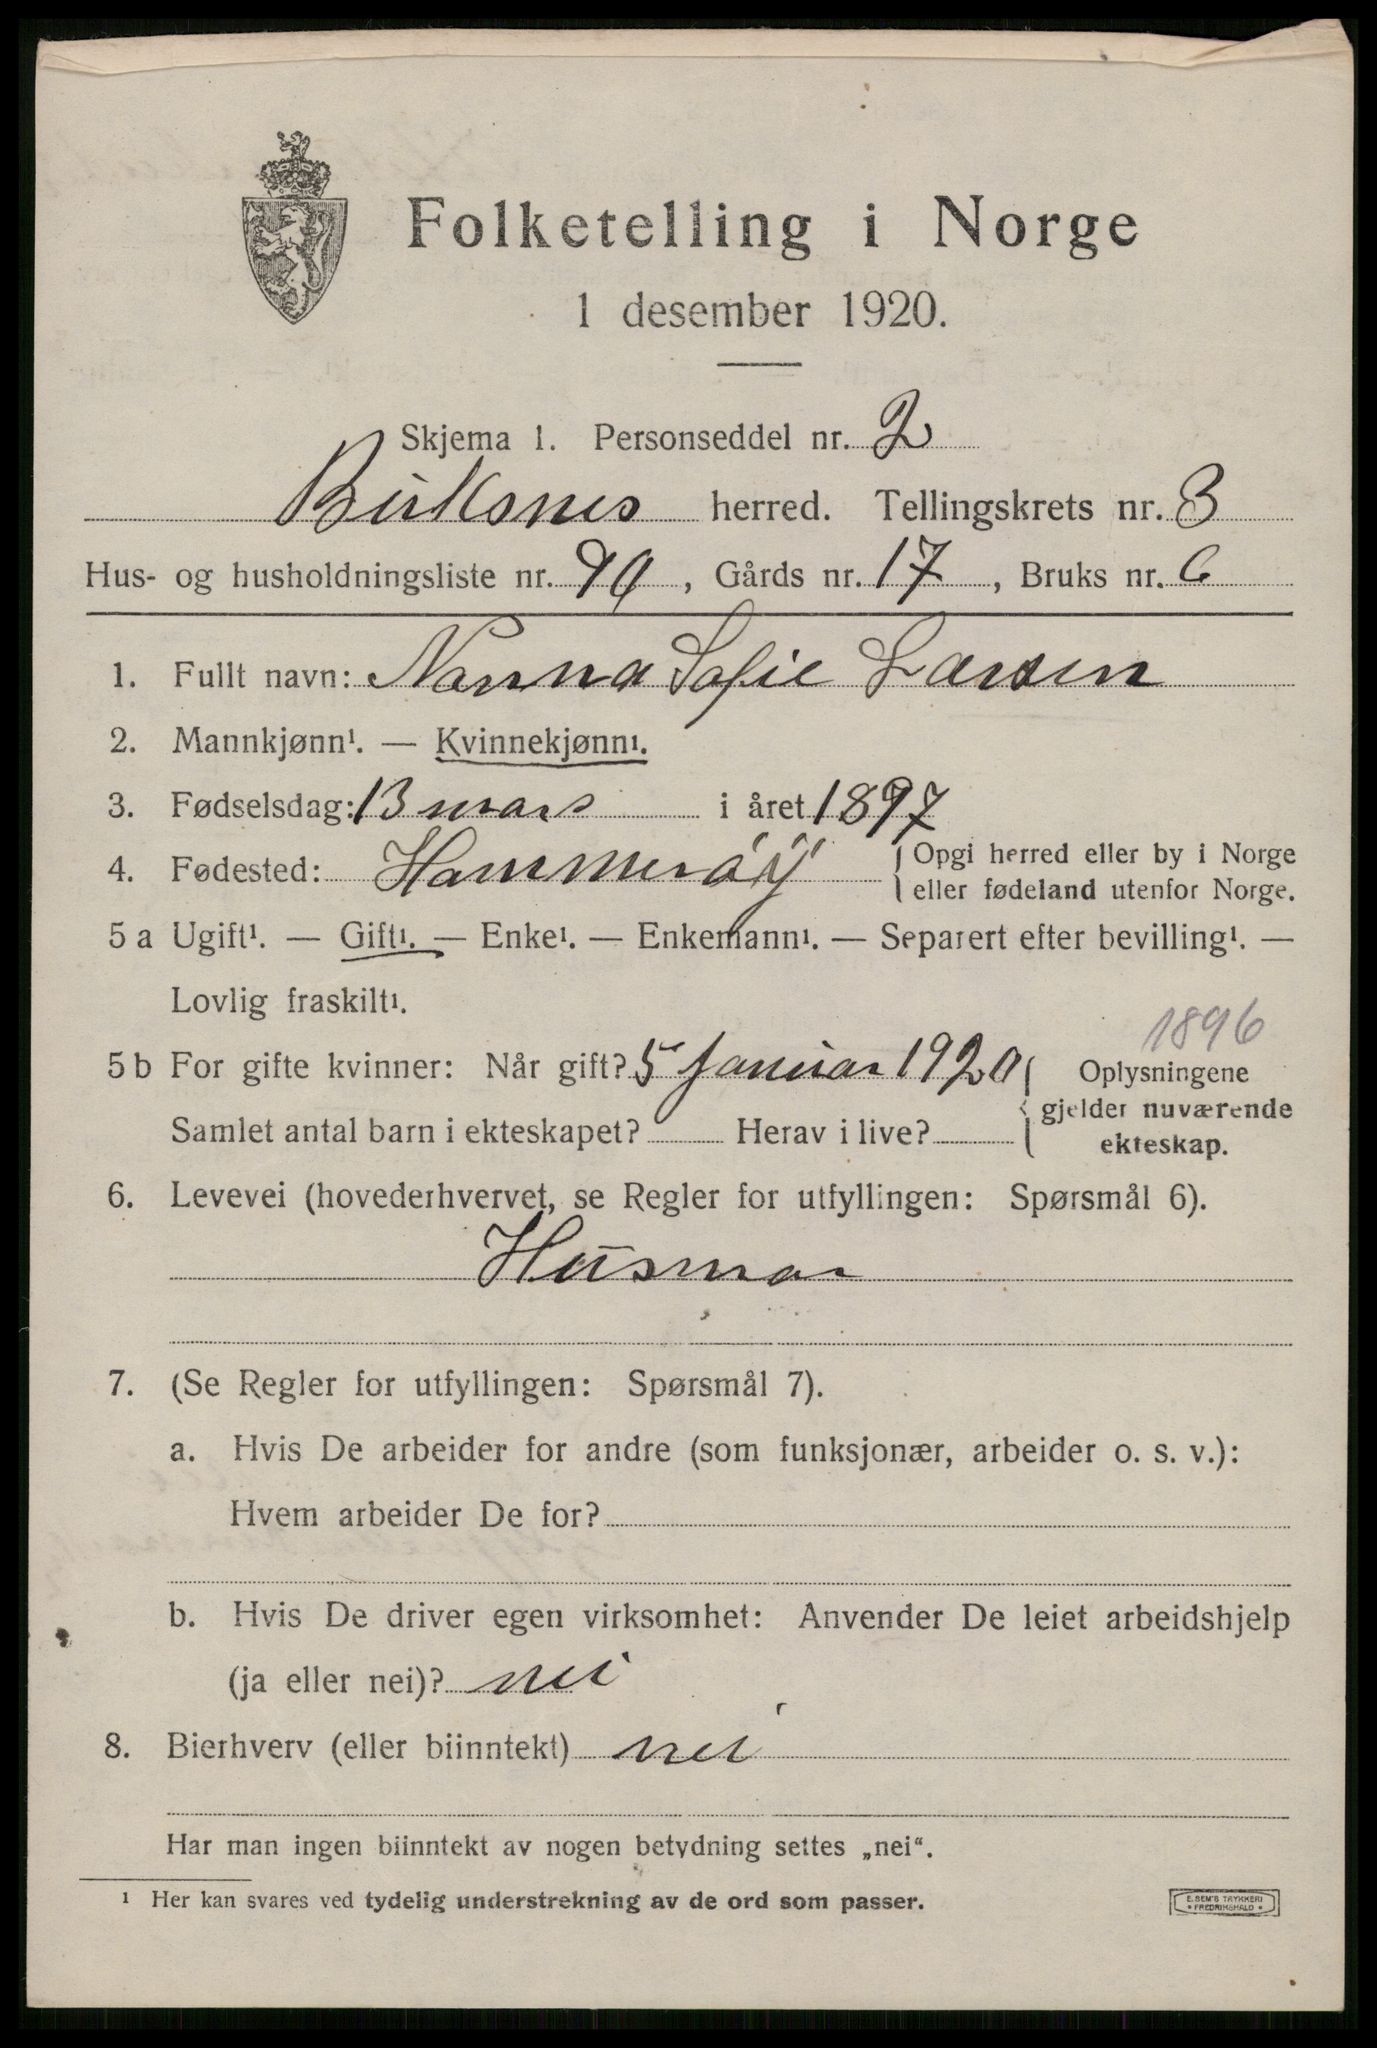 Folketelling i Norge
1 desember 1920.
Skjema 1. Personseddel nr. 2
Buksnes herred. Tellingskrets nr. 3
Hus- og husholdningsliste nr. 90, Gårds nr. 17, Bruks nr. 6
1. Fullt navn: Nanna Sofie Larsen
2. Mannkjønn¹. — Kvinnekjønn¹.
3. Fødselsdag: 13 mars i året 1897
4. Fødested: Hammerøy {Opgi herred eller by i Norge
eller fødeland utenfor Norge.
5 a Ugift¹. — Gift¹. — Enke¹. — Enkemann¹. — Separert efter bevilling¹. —
Lovlig fraskilt¹.
1896
5 b For gifte kvinner: Når gift? 5 Januar 1920 { Oplysningene
gjelder nuværende
Samlet antal barn i ekteskapet? Herav i live?
ekteskap.
6. Levevei (hovederhvervet, se Regler for utfyllingen: Spørsmål 6).
Husmor
7. (Se Regler for utfyllingen: Spørsmål 7).
a. Hvis De arbeider for andre (som funksjonær, arbeider o. s. v.):
Hvem arbeider De for?
b. Hvis De driver egen virksomhet: Anvender De leiet arbeidshjelp
(ja eller nei)? nei
8. Bierhverv (eller biinntekt) nei
Har man ingen biinntekt av nogen betydning settes „nei“.
¹ Her kan svares ved tydelig understrekning av de ord som passer.
E. SEM'S TRYKKERI
• FREDRIKSHALD •